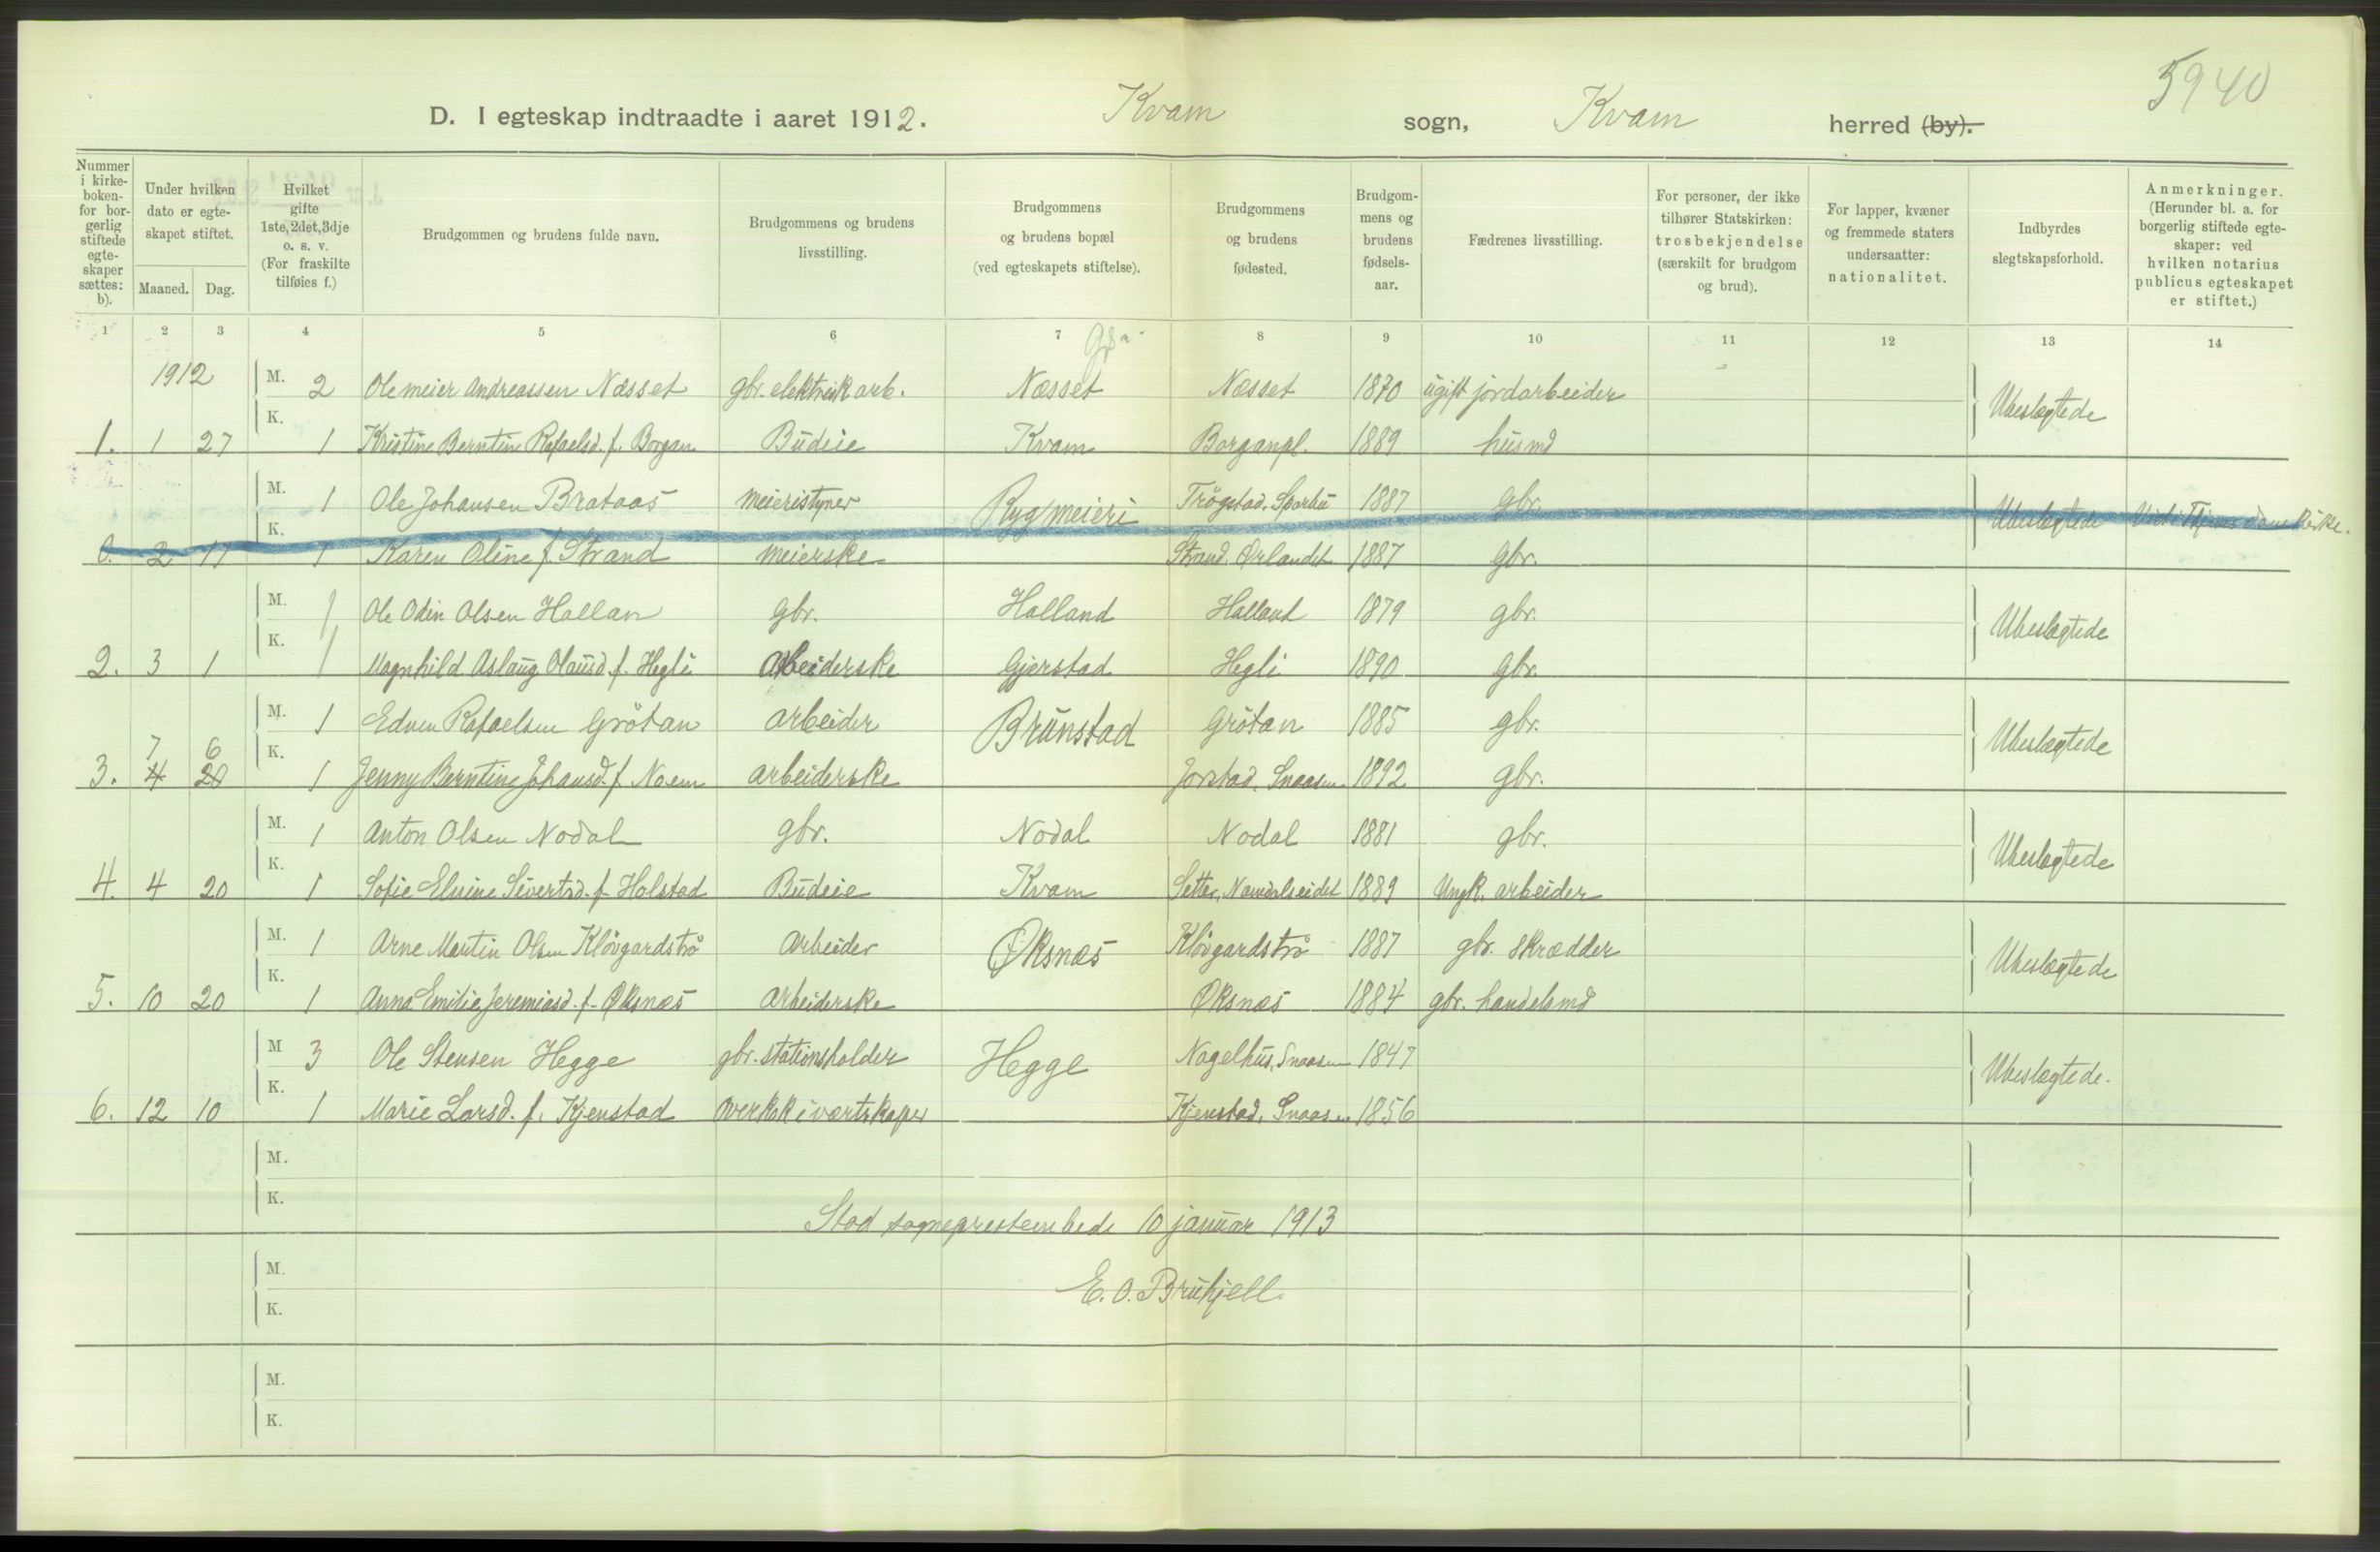 5940
D. I egteskap indtraadte i aaret 1912. Kvam sogn, Kvam herred (by).
Nummer i kirkeboken- for borgerlig stiftede egteskaper sættes: b).
Under hvilken dato er egteskapet stiftet.
Maaned. Dag.
Hvilket gifte 1ste, 2det, 3dje o. s. v. (For fraskilte tilføies f.)
Brudgommen og brudens fulde navn.
Brudgommens og brudens livsstilling.
Brudgommens og brudens bopæl (ved egteskapets stiftelse).
Brudgommens og brudens fødested.
Brudgommens og brudens fødselsaar.
Fædrenes livsstilling.
For personer, der ikke tilhører Statskirken: trosbekjendelse (særskilt for brudgom og brud).
For lapper, kvæner og fremmede staters undersaatter: nationalitet.
Indbyrdes slegtskapsforhold.
Anmerkninger. (Herunder bl. a. for borgerlig stiftede egteskaper: ved hvilken notarius publicus egteskapet er stiftet.)
1 2 3 4 5 6 7 8 9 10 11 12 13 14
1912 M. 2 Ole meier Andreassen Næsset gbr. elektrisk arb. Næsset Næsset 1870 ugift jordarbeider Ubeslegtede
1. 1 27 K. 1 Kristine Berntine Rafaelsd. f. Borgan Budeie Kvam Borganpl. 1889 husmd
M. 1 Ole Johansen Brataas meieristyrer Ryg meieri Trøgstad, Sparbu 1887 gbr. Ubeslegtede
0. 2 17 K. 1 Karen Oline f. Strand meierske Strand, Ørlandet 1887 gbr.
M. 1 Ole Odin Olsen Hallan gbr. Halland Halland 1879 gbr. Ubeslegtede
2. 3 1 K. 1 Magnhild Aslaug Olausd. f. Hegli Arbeiderske Gjerstad Hegli 1890 gbr.
M. 1 Edvin Rafaelsen Grötan arbeider Brünstad Grötan 1885 gbr. Ubeslegtede
7 6
3. 4 20 K. 1 Jenny Berntine Johansd. f. Noem arbeiderske Jørstad, Snaasen 1892 gbr.
M. 1 Anton Olsen Nodal gbr. Nodal Nodal 1881 gbr. Ubeslegtede
4. 4 20 K. 1 Sofie Elvine Sivertsd. f. Holstad Budeie Kvam Setter, Namdalseidet 1889 Ungk. arbeider
M. 1 Arne Martin Olsen Klövgardströ Arbeider Øksnæs Klövgardströ 1887 gbr. skrædder Ubeslegtede
5. 10 20 K. 1 Anna Emilie Jeremiasd. f. Øksnæs Arbeiderske Øksnæs 1884 gbr. handelsmd
M 3 Ole Stensen Hegge gbr. stationsholder Hegge Nagelhus, Snaasen 1847 Ubeslegtede.
6. 12 10 K. 1 Marie Larsd. f. Kjenstad Overkok i værtskaper Kjenstad, Snaasen 1856
M.
K.
Stod sogneprestembede 10 januar 1913
M.
E. O. Brufjell.
K.
M.
K.